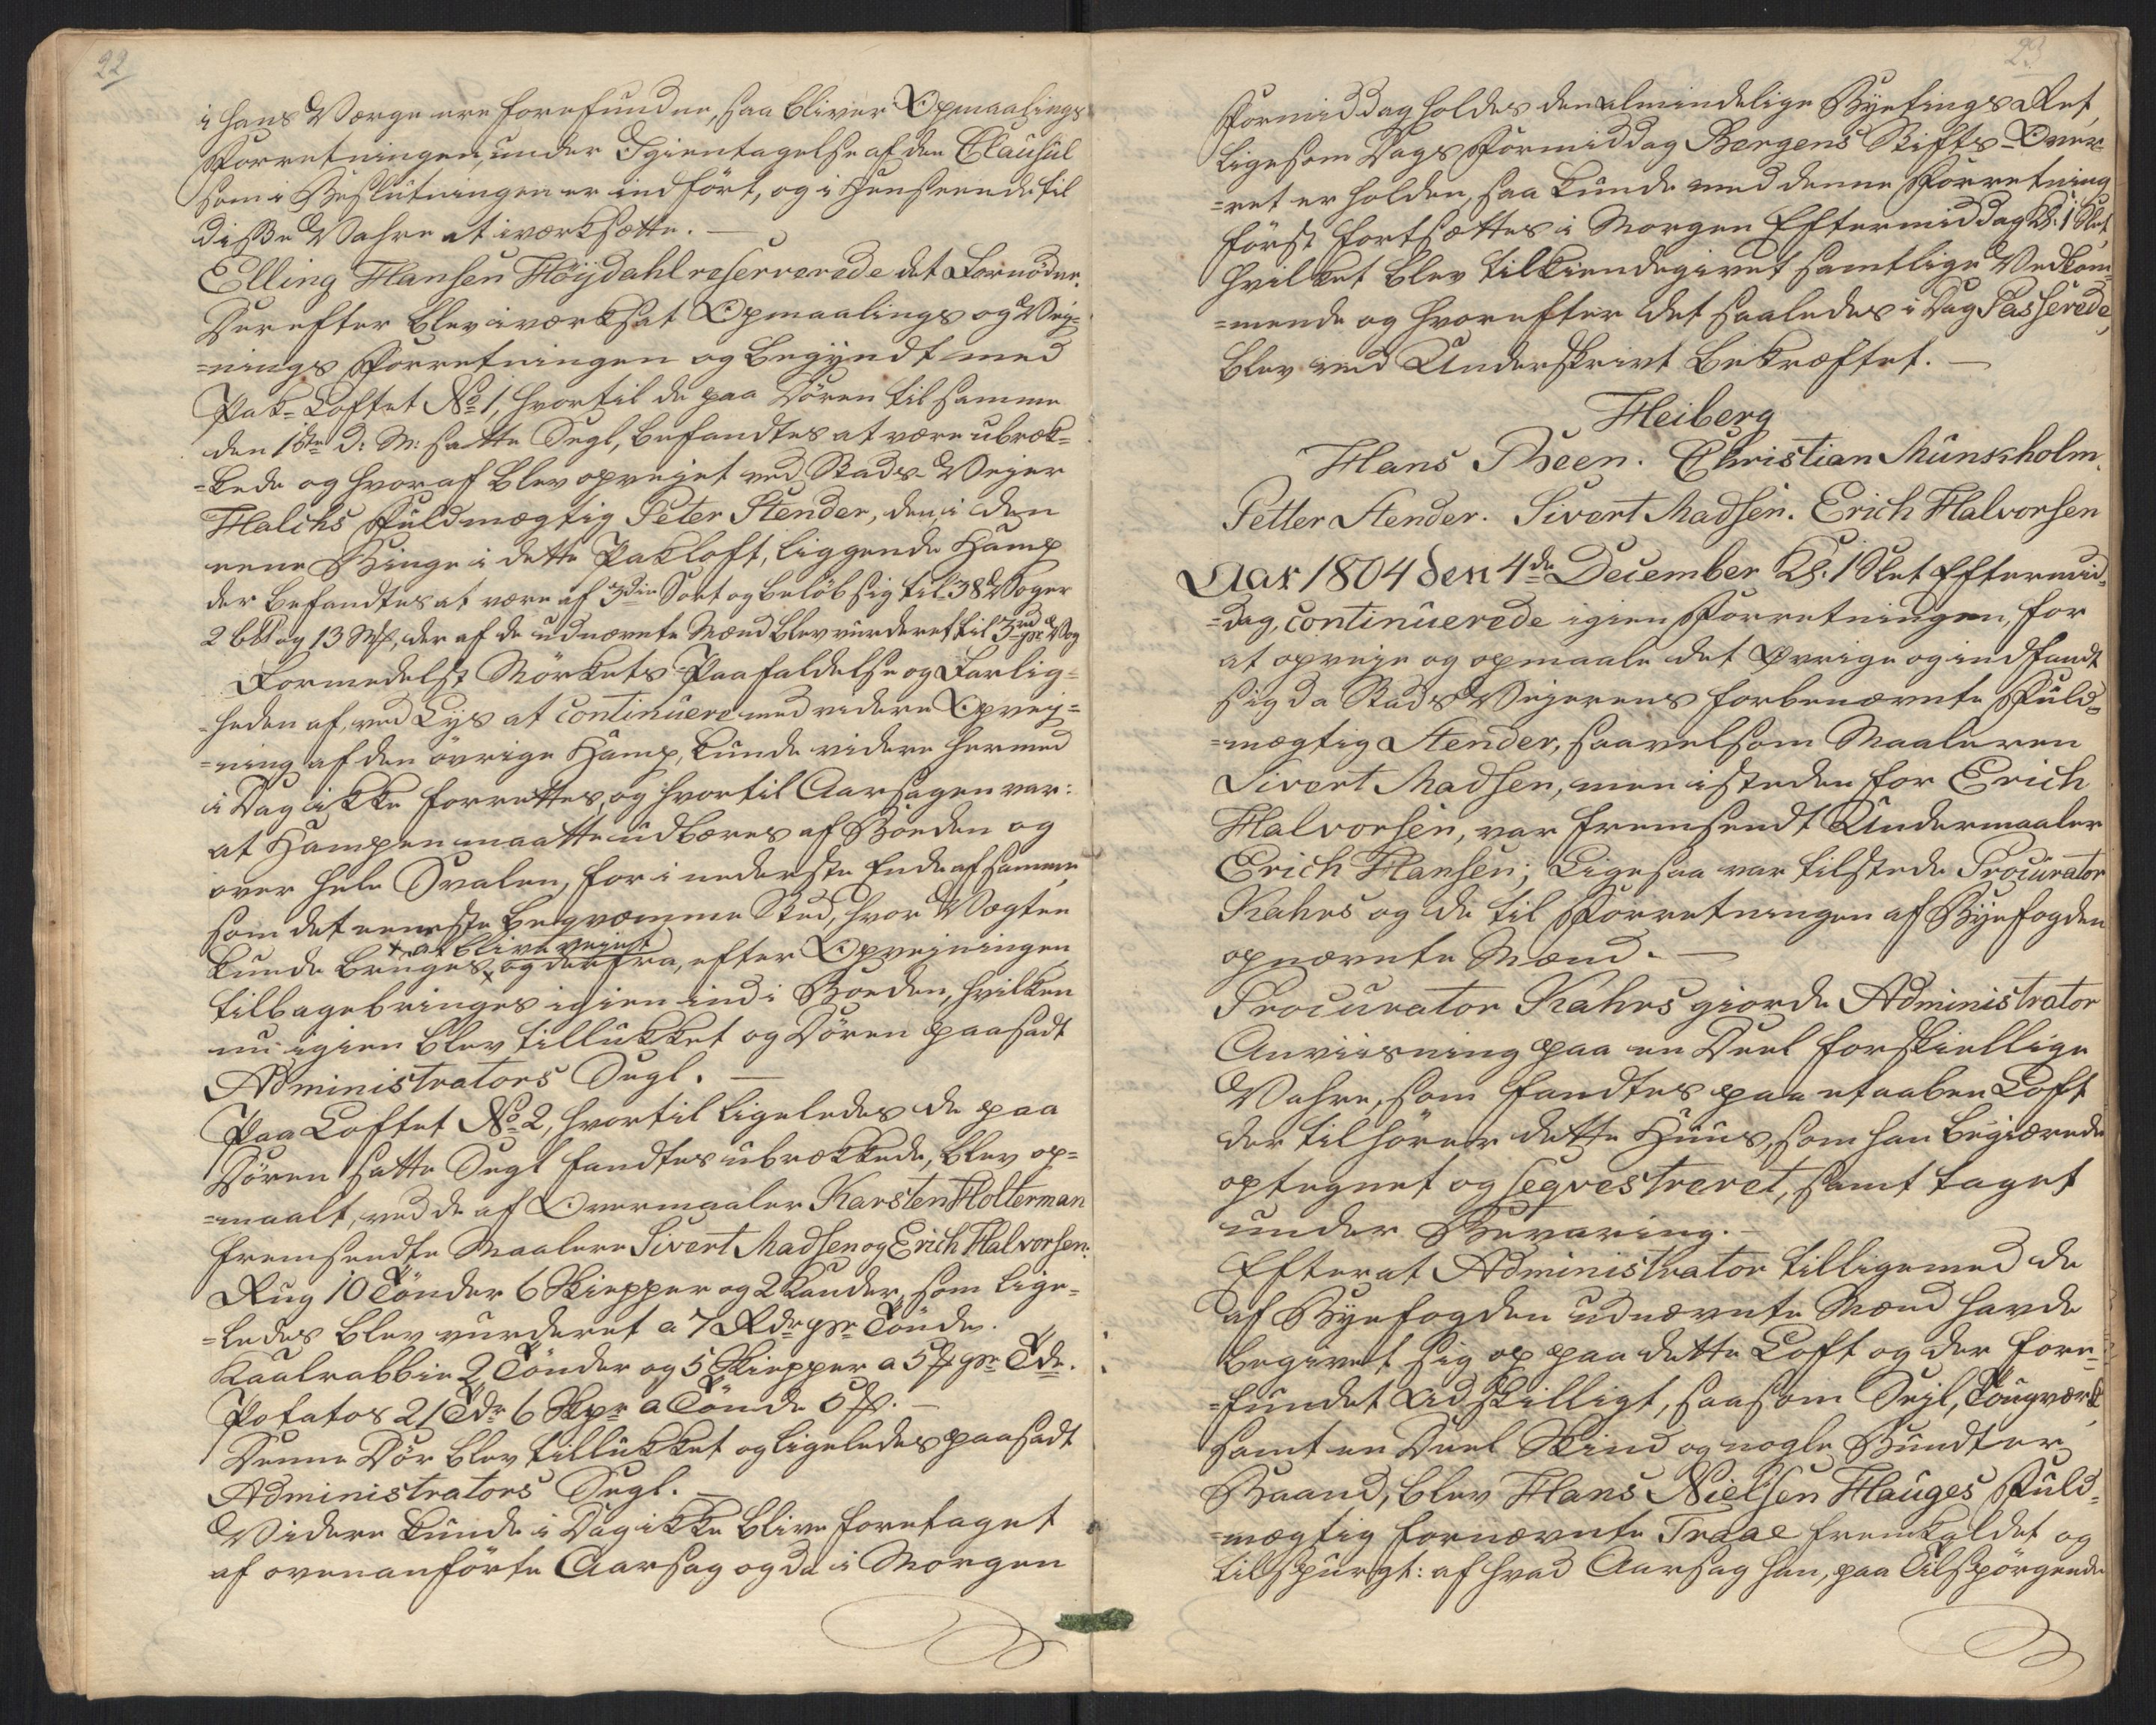 22
i hans Værge ere forefundne, saa bliver Opmaalings
Forretningen, under Igientagelse af den Clausul
som i Beslutningen er indført, og i Henseende til
disse Vahre at iværksætte. —
Elling Hansen Höÿdahl reserverede det Fornødne.
Derefter blev iværksat Opmaalings og Vei¬
=nings Forretningen og begyndt med
Pak=Loftet No 1, hvortil de paa Døren til samme
den 1ste d: M: satte Segl, befandtes at være ubræk=
=kede og hvoraf blev opveiet ved Stads-Veier
Halchs Fuldmægtig Peter Stender, den, i den
eene Binge i dette Pakloft, liggende Hamp
der befandtes at være af 3die Sort og beløb sig til 38 Voger
2 b℔ og 13 Mk, der af de udnævnte Mænd blev vurderet til 3 rd pr Vog
Formedelst Mørkets Paafaldelse og Farlig=
=heden af, ved Lys at continuere med videre Opvei=
=ning af den øvrige Hamp, kunde videre hermed
i Dag ikke forrettes, og hvortil Aarsagen var:
at Hampen maatte udbæres af Boeden og
over hele Svalen, for i nederste Ende af samme,
som det eeneste beqvæmme Sted, hvor Vægten
x at blive veiet
kunde bruges x og derfra, efter Opveiningen,
tilbagebringes igien ind i Boeden, hvilken
nu igien blev tillukket og Døren paasadt
Administrators Segl. —
Paa Loftet No 2, hvortil ligeledes de paa
Døren satte Segl fandtes ubrækkede, blev op=
=maalt, ved de af Overmaaler Karsten Holterman
fremsendte Maalere Sivert Madsen og Erich Halvorsen:
Rug 10 Tønder 6 Skiepper og 2 Kander, som lige=
=ledes blev vurderet a 7 Rdr pr Tønde.
Kaalrabbie 2 Tønder og 5 Skiepper a 5 ß pr Tde.
Potatos 21 Tdr 6 Skpr a Tønde 6 ß. —
Denne Dør blev tillukket og ligeledes paasadt
Administrators Segl. —
Videre kunde i Dag ikke blive foretaget
af ovenanførte Aarsag og da i Morgen
23
Formiddag holdes den almindelige Byetings Ret,
ligesom Dags Formiddag Bergens Stifts-Over=
=ret er holden, saa kunde med denne Forretning
først fortsættes i Morgen Eftermiddag Kl: 1 Slet,
hvilket blev tilkiendegivet samtlige Vedkom=
=mende og hvorefter det saaledes i Dag Passerede,
blev ved Underskrivt bekræftet. —
Heiberg
Hans Been. Christian Münsholm.
Petter Stender. Sivert Madsen. Erich Halvorsen
Aar 1804 den 4de December Kl: 1 Slet Eftermid=
=dag, continuerede igien Forretningen, for
at opveie og opmaale det Øvrige og indfandt
sig da Stads Veierens forbenævnte Fuld=
=mægtig Stender, saavelsom Maaleren
Sivert Madsen, men istedenfor Erich
Halvorsen, var fremsendt Undermaaler
Erich Hansen; Ligesaa var tilstede Procurator
Kahrs og de til Forretningen af Byefogden
opnævnte Mænd. —
Procurator Kahrs giorde Administrator
Anviisning paa en Deel forskiellige
Vahre, som fandtes paa et aaben Loft
der tilhører dette Huus, som han begiærede
optegnet og seqvestreret, samt taget
under Bevaring. —
Efterat Administrator tilligemed de
af Byefogden udnævnte Mænd havde
begivet sig op paa dette Loft og der fore=
=fundet Adskilligt, saasom Seil, Tougværk,
samt en Deel Skind og nogle Bundter
Baand, blev Hans Nielsen Hauges Fuld=
=mægtig fornævnte Traae fremkaldet og
tilspurgt: af hvad Aarsag han, paa Tilspørgende